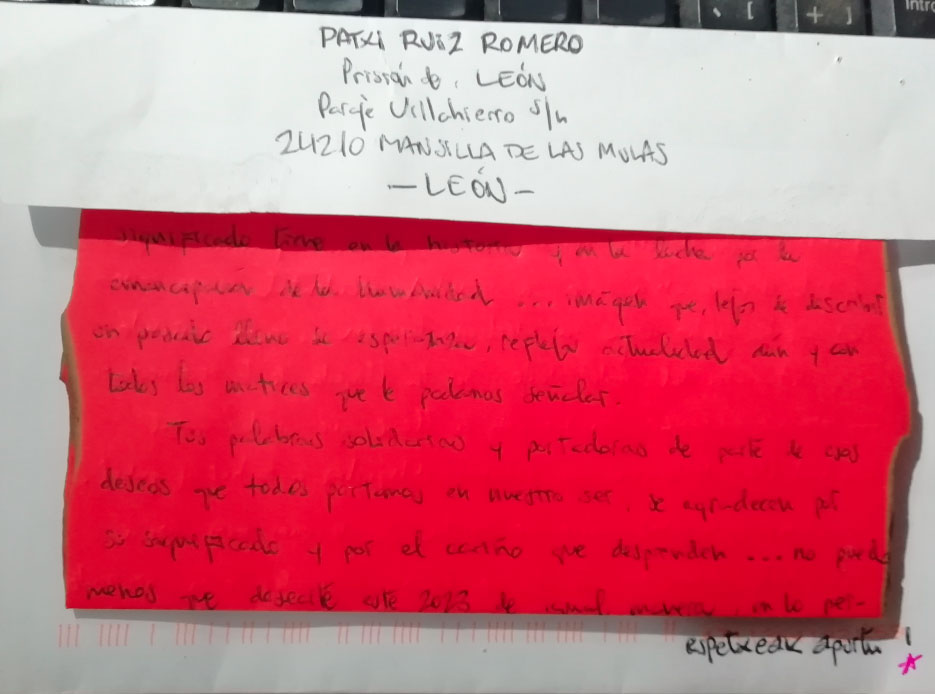 [
+ ]
Intro
PATXI RUIZ ROMERO
Prisión de LEÓN
Paraje Villahierro s/n
24210 MANSILLA DE LAS MULAS
— LEÓN —
significado tiene en la historia y en la lucha por la
emancipación de la Humanidad ... imágen que, lejos de describir
un pasado lleno de esperanza, refleja actualidad aún y con
todos los matices que le podamos señalar.
Tus palabras solidarias y portadoras de parte de esos
deseos que todos portamos en nuestro ser, se agradecen por
su significado y por el cariño que desprenden ... no puedo
menos que desearte este 2023 de igual manera, en lo per-
espetxeak apurtu !